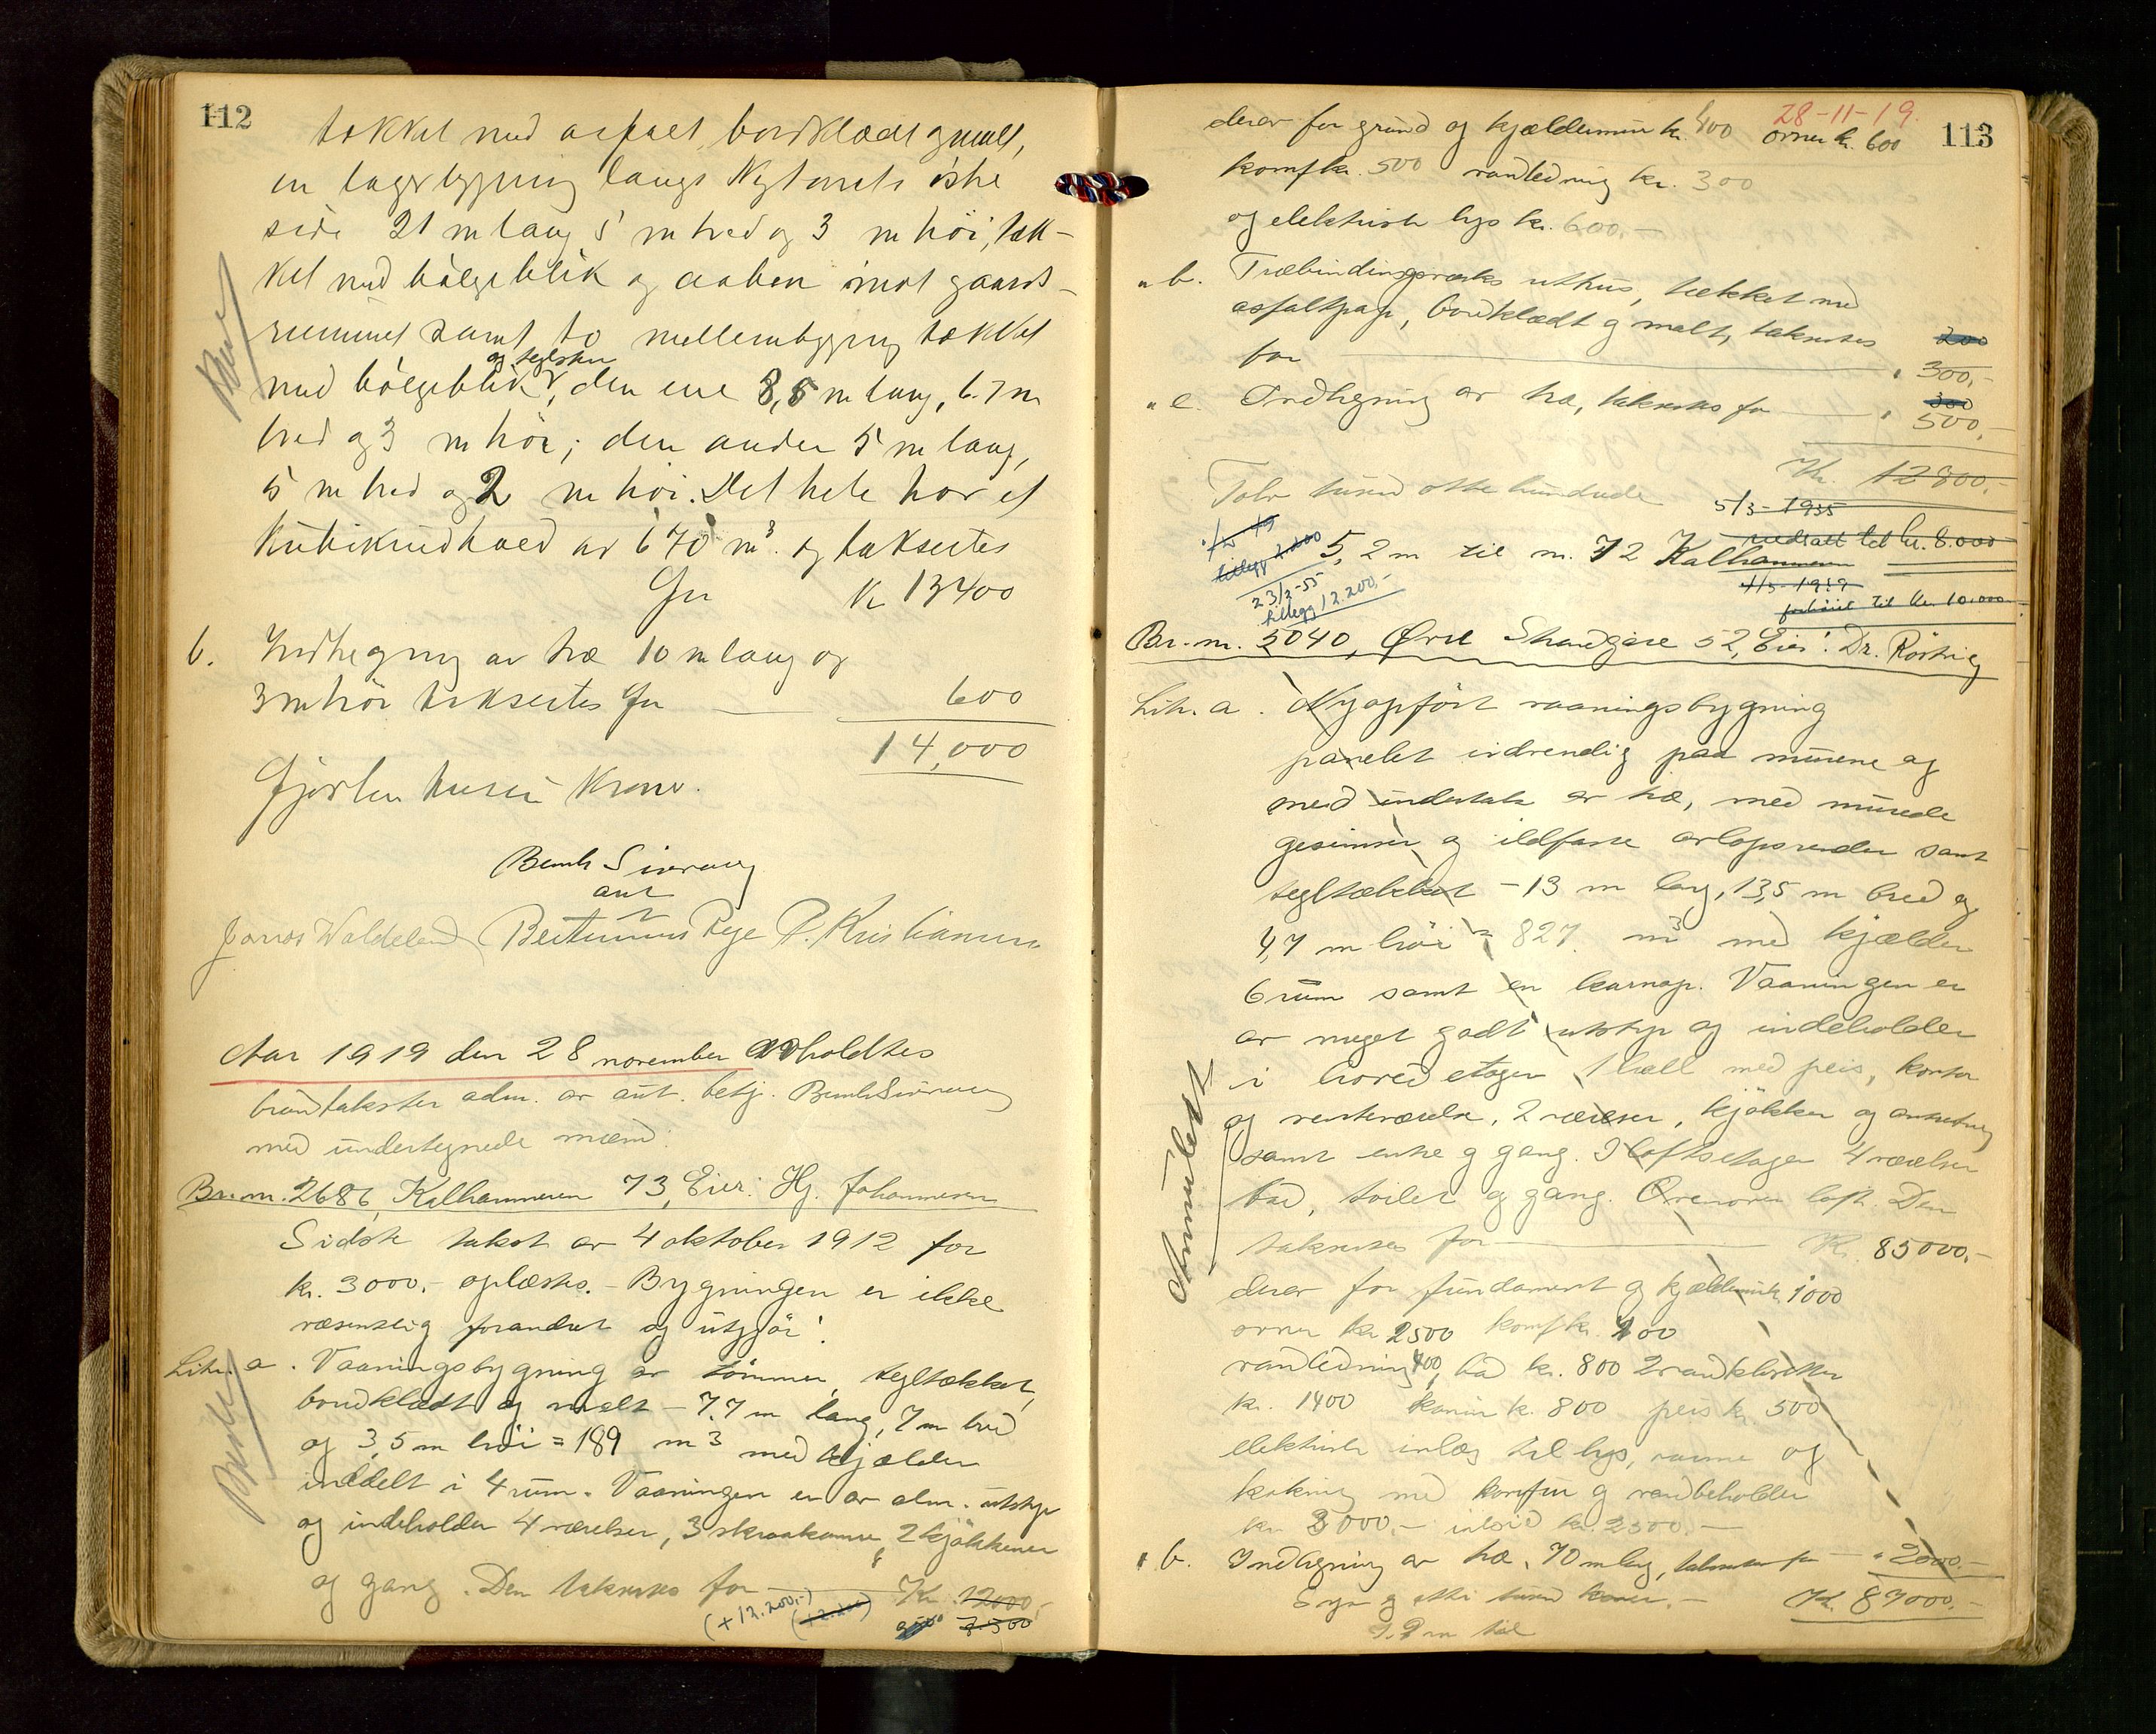 112
tækket med asfalt, bordklædt og malt,
en lagerbygning langs Nytorvets østre
side 21 m lang 5 m bred og 3 m høi, tæk-
ket med bølgeblik og aaben imot gaards-
rummet samt to mellembygning tækket
og teglsten
med bølgeblik, den ene 8,5 m lang, 6.7 m
bred og 3 m høi; den anden 5 m lang,
5 m bred og 2 m høi. Det hele har et
kubikindhold av 670 m³. og taksertes
for kr 13400
b. Indhegning av træ 10 m lang og
3 m høi taksertes for 600
14,000
Fjorten tusen kroner.
Bernh Sivernæs
aut
Jonas Waldeland Bertinius Rege P. Kristiansen
Aar 1919 den 28 november avholdtes
brandtakster adm. av aut. betj. Bernh Sivernæs
med undertegnede mænd:
Br. nr. 2686, Kalhammeren 73, Eier: Hj. Johannesen
Sidste takst av 4 oktober 1912 for
kr. 3000.- oplæstes. - Bygningen er ikke
væsentlig forandret og utgjør:
Litr. a. Vaaningsbygning av tømmer, tegltækket,
bordklædt og malt - 7.7 m lang, 7 m bred
og 3,5 m høi = 189 m³ med kjælder
inddelt i 4 rum. Vaaningen er av alm. utstyr
og indeholder 4 værelser, 3 skraakamre, 2 kjøkkener
og gang. Den taksertes for Kr. 12000,-
(+12.200,-) 7.500
28-11-19.
113
derav for grund og kjældermur kr. 400 ovner kr. 600
komf kr. 500 vandledning kr. 300
og elektrisk lys kr. 600.-
" b. Træbindingsverks uthus, tækket med
asfaltpap, bordklædt og malt, taksertes 200
for " 300.-
" c. Indhegning av træ, taksertes for " 300
500.-
Kr. 12800.-
Tolv tusen otte hundrede
5/3-1935
nedsatt til kr. 8.000
5,2 m til nr. 72 Kalhammeren
tillegg 2.200
23/2-55
tillegg 12.200,-
1/5-1939
forhøiet til kr. 10.000
Br. nr. 3040, Øvre Strandgate 52, Eier: Dr. Röthig
Litr. a. Nyopført vaaningsbygning
panelet indvendig paa murene og
med undertak av træ, med murede
gesimser og ildfaste avløpsrender samt
tegltækket - 13 m lang, 13,5 m bred og
4,7 m høi = 827 m³ med kjælder
6 rum samt en karnap. Vaaningen er
av meget godt utstyr og indeholder
i hovedetagen 1 hall med peis, kontor
og venteværelse, 2 værelser, kjøkken og anretning
samt entre og gang. I loftsetagen 4 værelser
bad, toilet og gang. Ovenover loft. Den
taksertes for Kr. 85000.-
Annulledt
derav for fundament og kjældermur kr. 1000
ovner kr 2500 komf kr. 400
vandledning 400, bad kr. 800 2 vandklosetter
kr. 1400 kamin kr. 800 peis kr. 500
elektrisk indlæg til lys, varme og
kokning med komfur og vandbeholder
kr 3000.- ildsted kr. 2500.-
" b. Indhegning av træ, 70 m lang, taksertes for " 2000.-
Syv og otti tusen kroner.- Kr. 87000.-
1.9 m til